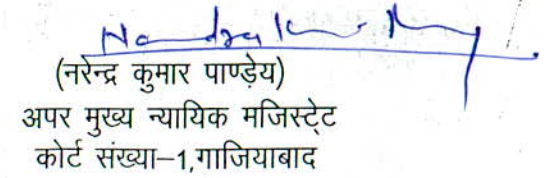 (नरेन्द्र कुमार पाण्ड़ेय)
अपर मुख्य न्यायिक मजिस्ट्रेट
कोर्ट संख्या–1,गाजियाबाद